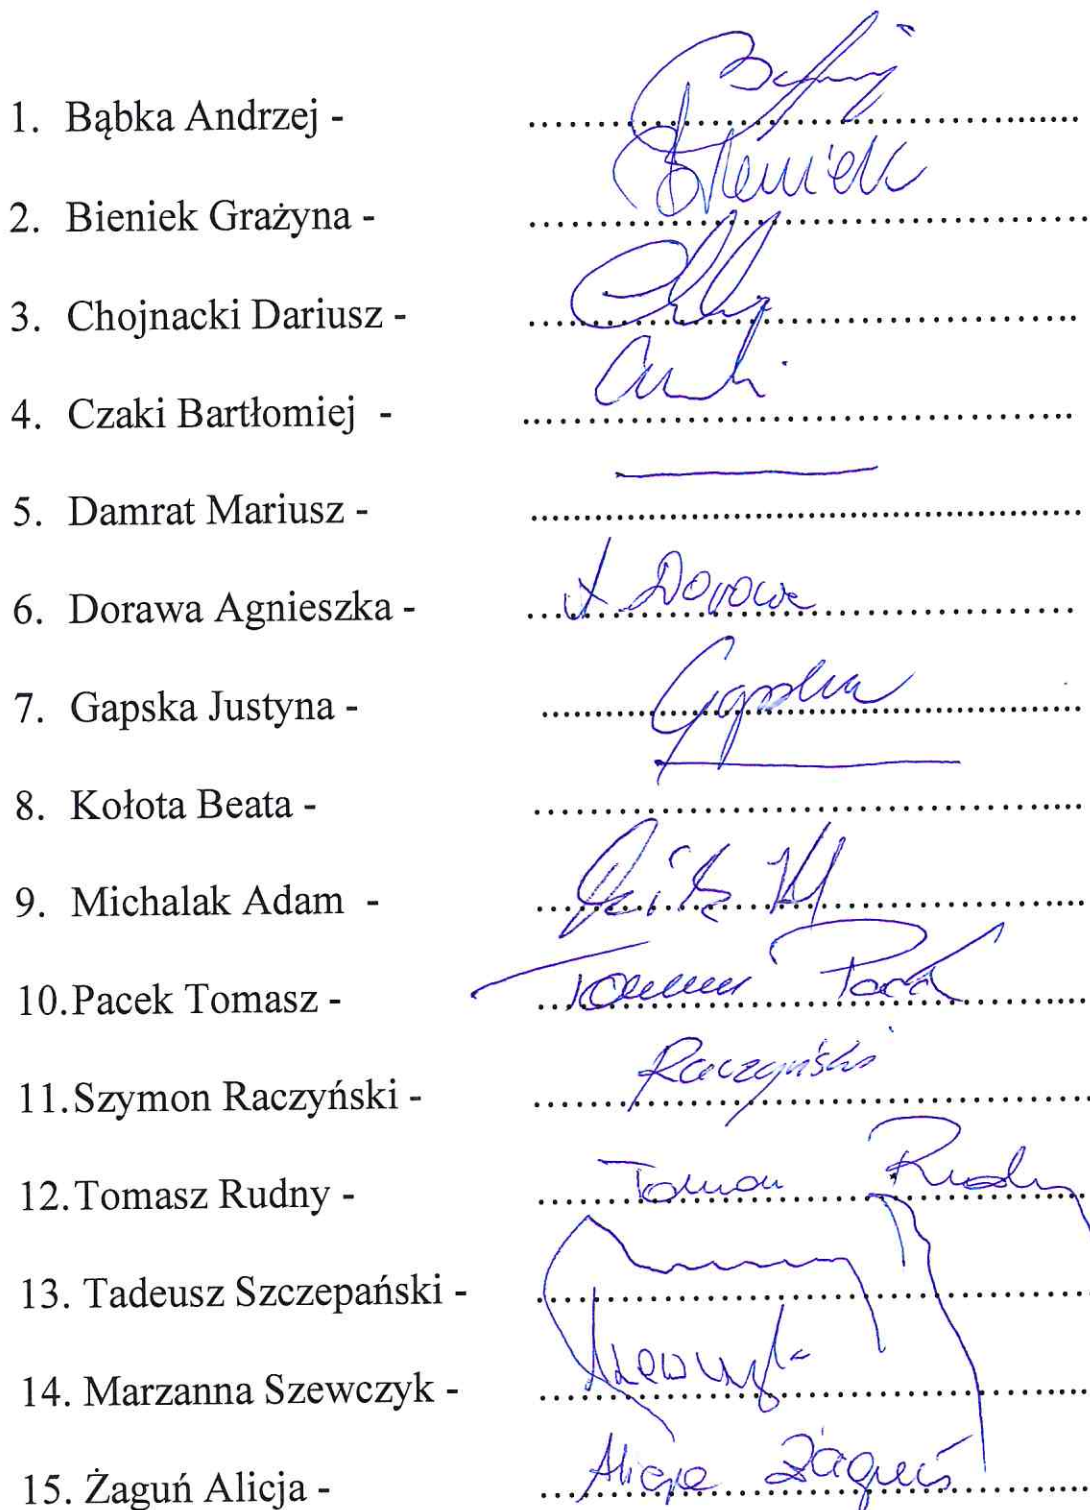 1. Bąbka Andrzej - ......................................................
2. Bieniek Grażyna - ...................................................... Bieniek
3. Chojnacki Dariusz - ......................................................
4. Czaki Bartłomiej - ......................................................
5. Damrat Mariusz - ......................................................
6. Dorawa Agnieszka - ...................................................... A Dorawa
7. Gapska Justyna - ...................................................... Gapska
8. Kołota Beata - ......................................................
9. Michalak Adam - ......................................................
10. Pacek Tomasz - ...................................................... Tomasz Pacek
11. Szymon Raczyński - ...................................................... Raczyński
12. Tomasz Rudny - ...................................................... Tomasz Rudny
13. Tadeusz Szczepański - ......................................................
14. Marzanna Szewczyk - ...................................................... Szewczyk
15. Żaguń Alicja - ...................................................... Alicja Żaguń